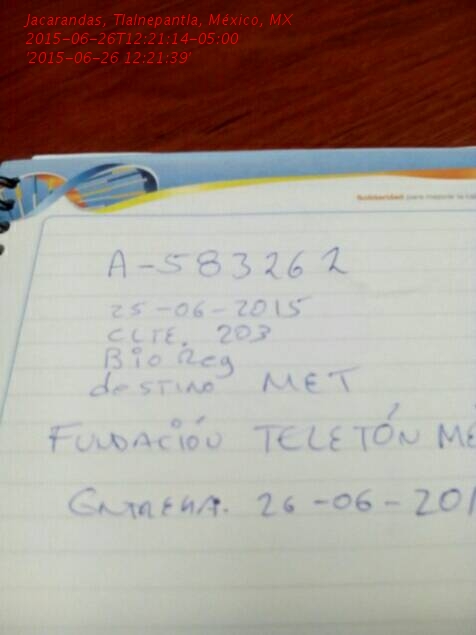 Jacarandas, Tlalnepantla, México, MX
2015-06-26T12:21:14-05:00
'2015-06-26 12:21:39'
Solidaridad para mejorar la
A-583262
25-06-2015
CLTE. 203
Bio Reg
destino MET
FUNDACIÓN TELETÓN MÉ
ENTREGA. 26-06-201